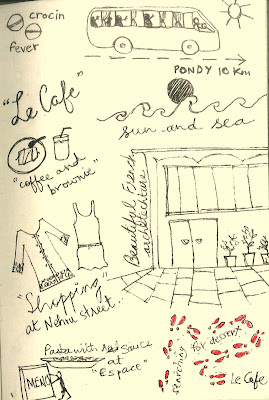 crocin
fever
PONDY 10 Km
"Le Cafe"
sun and sea
"coffee and
brownie"
Beautiful French
architechture
"Shopping"
at Nehru street..
Pasta with red sauce
at
"Espace"
MENU
searching for decent
Le Cafe